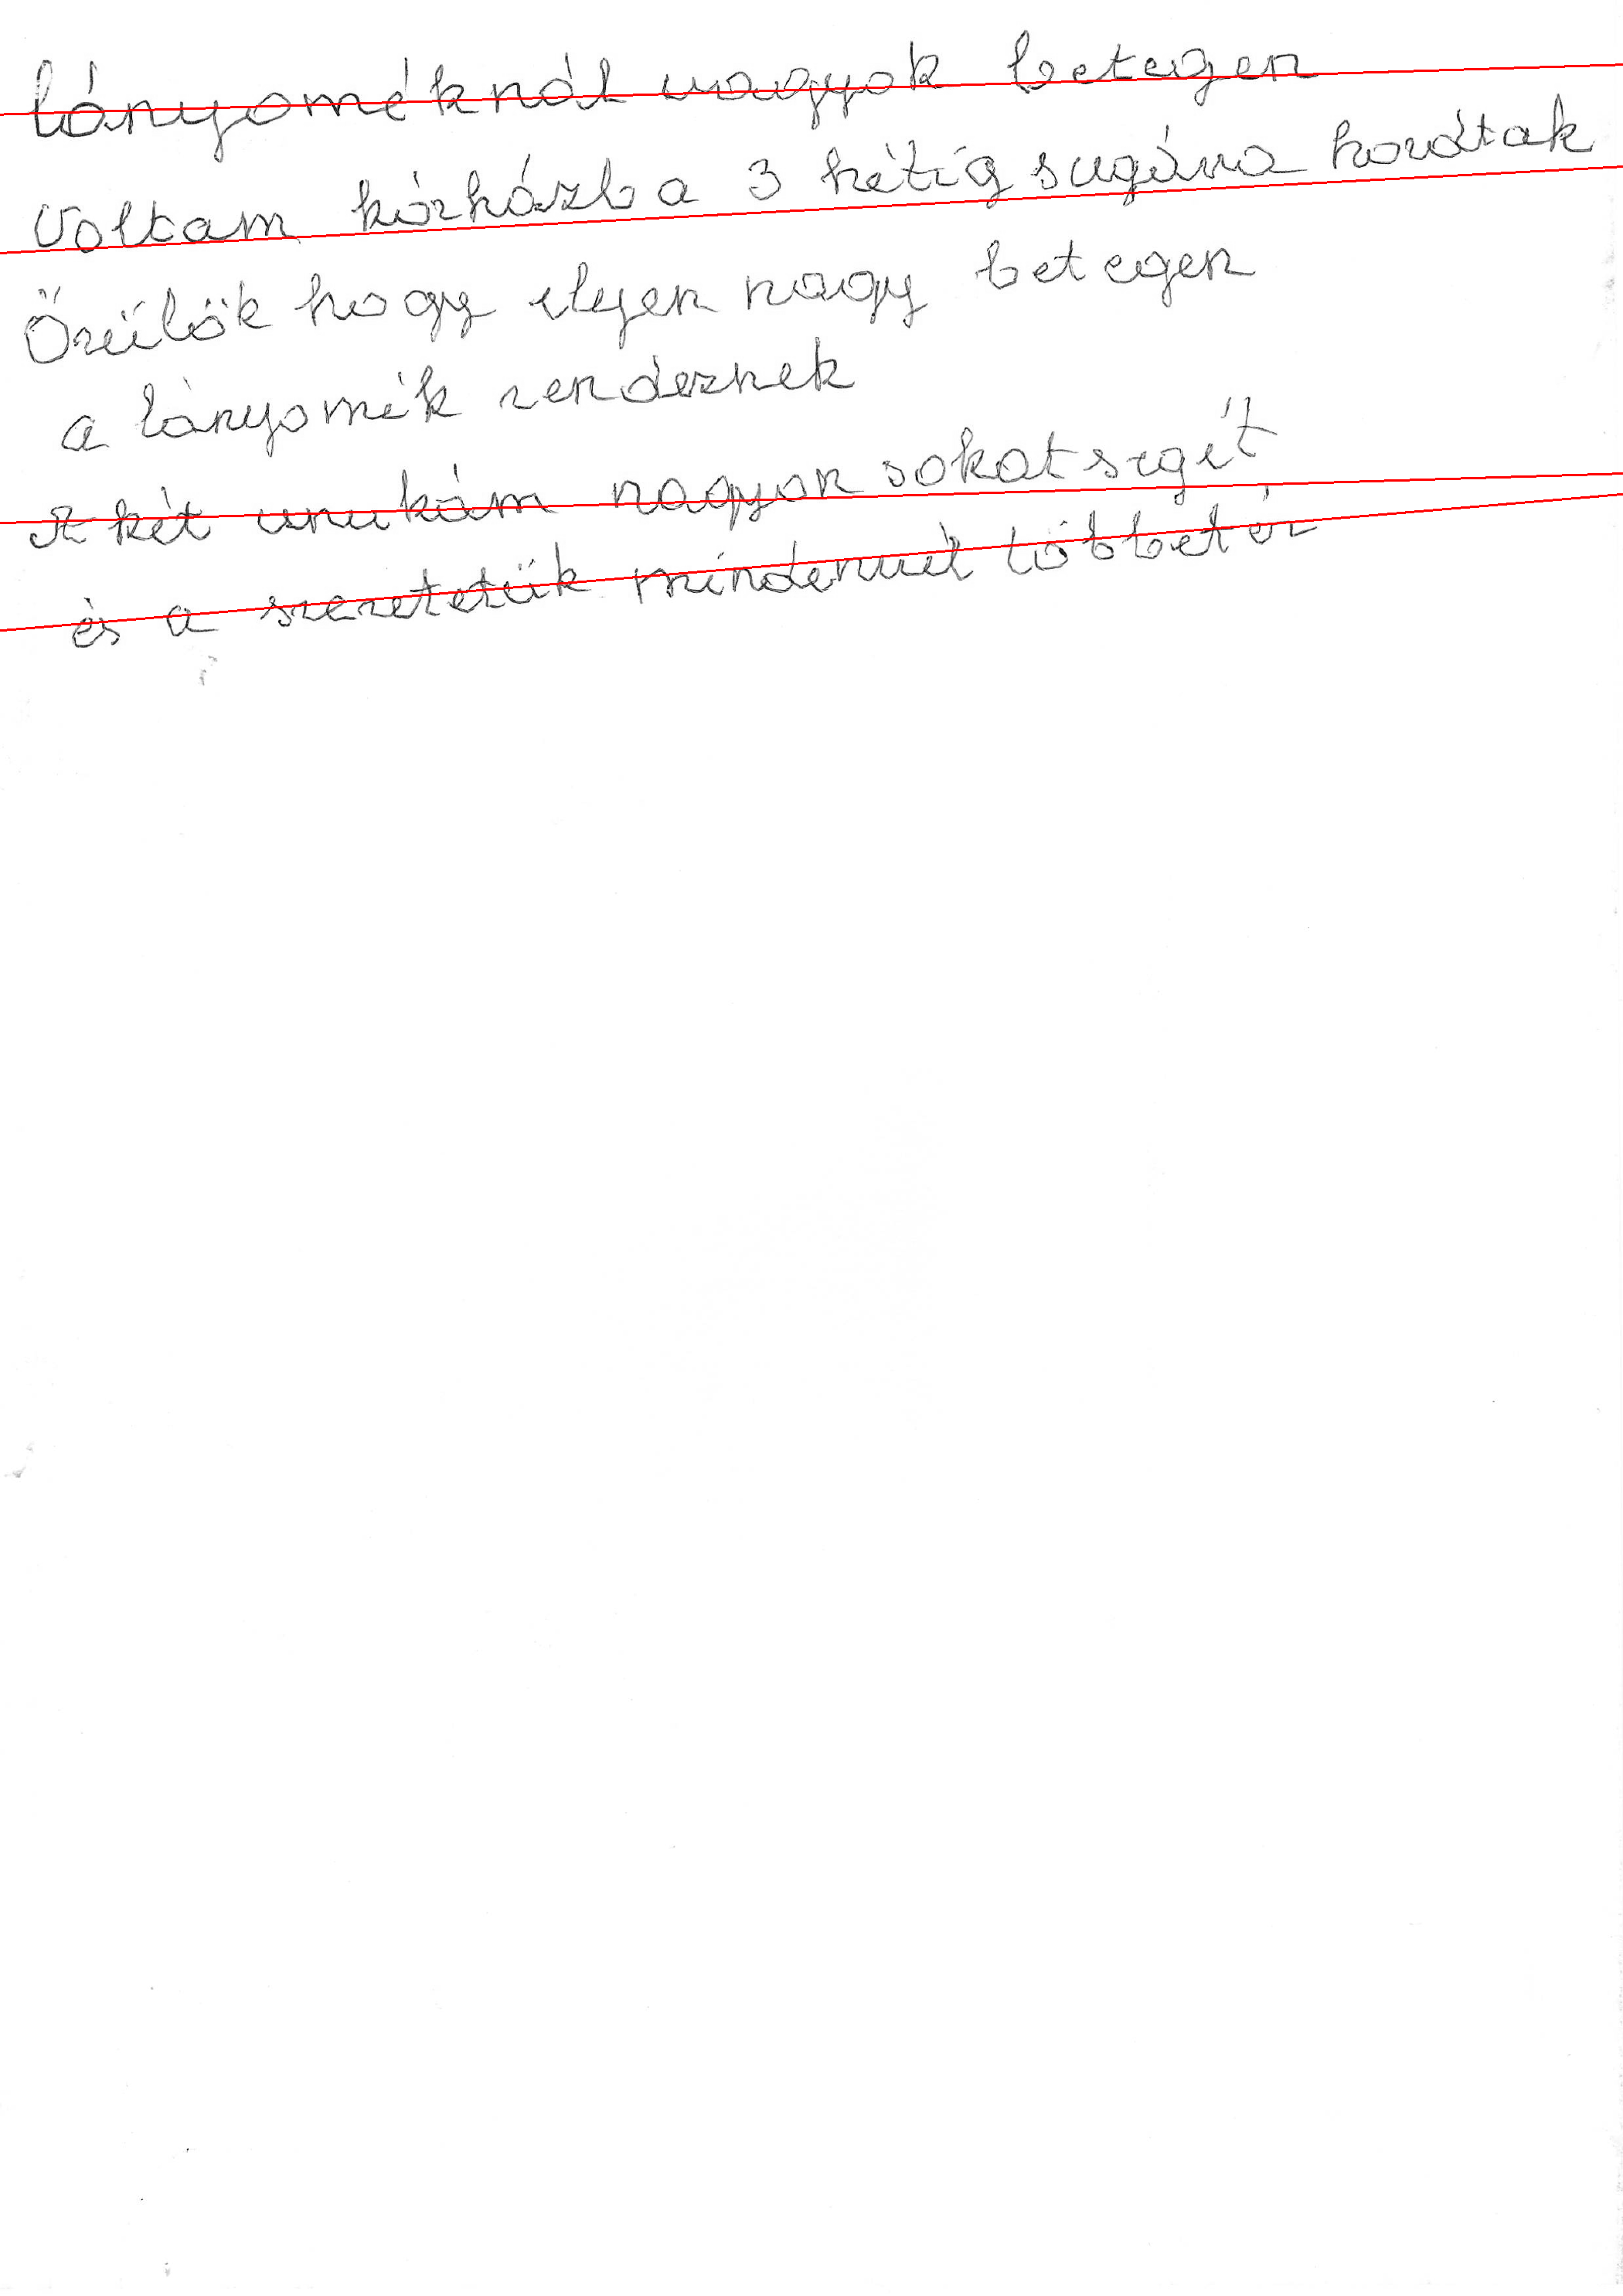 lányoméknál vagyok betegen
Voltam kórházba 3 hétig sugárra hordtak
Örülök hogy ilyen nagy betegen
a lányomék rendeznek
A két unukám nagyon sokat segít
és a szeretetük mindennél többet ér